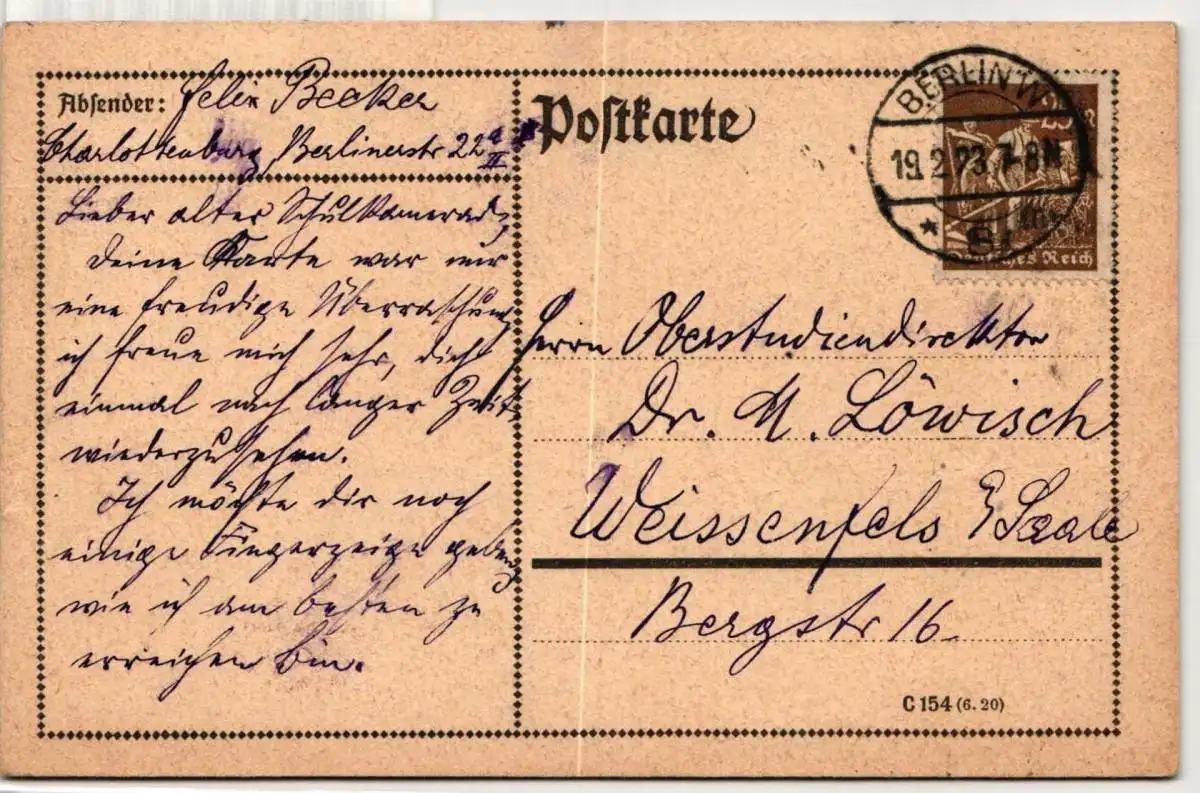 Absender: Felix Becker
Charlottenburg, Berlinerstr 22a II
Lieber alter Schulkamerad,
deine Karte war mir
eine freudige Überraschung,
ich freue mich sehr, dich
einmal nach langer Zeit
wiederzusehen.
Ich möchte dir noch
einige Fingerzeige geben,
wie ich am besten zu
erreichen bin.
Postkarte
BERLIN W
19.2.23.7-8N
25
Deutsches Reich
Herrn Oberstudiendirektor
Dr. M. Löwisch
Weissenfels Saale
Bergstr 16
C 154 (6. 20)